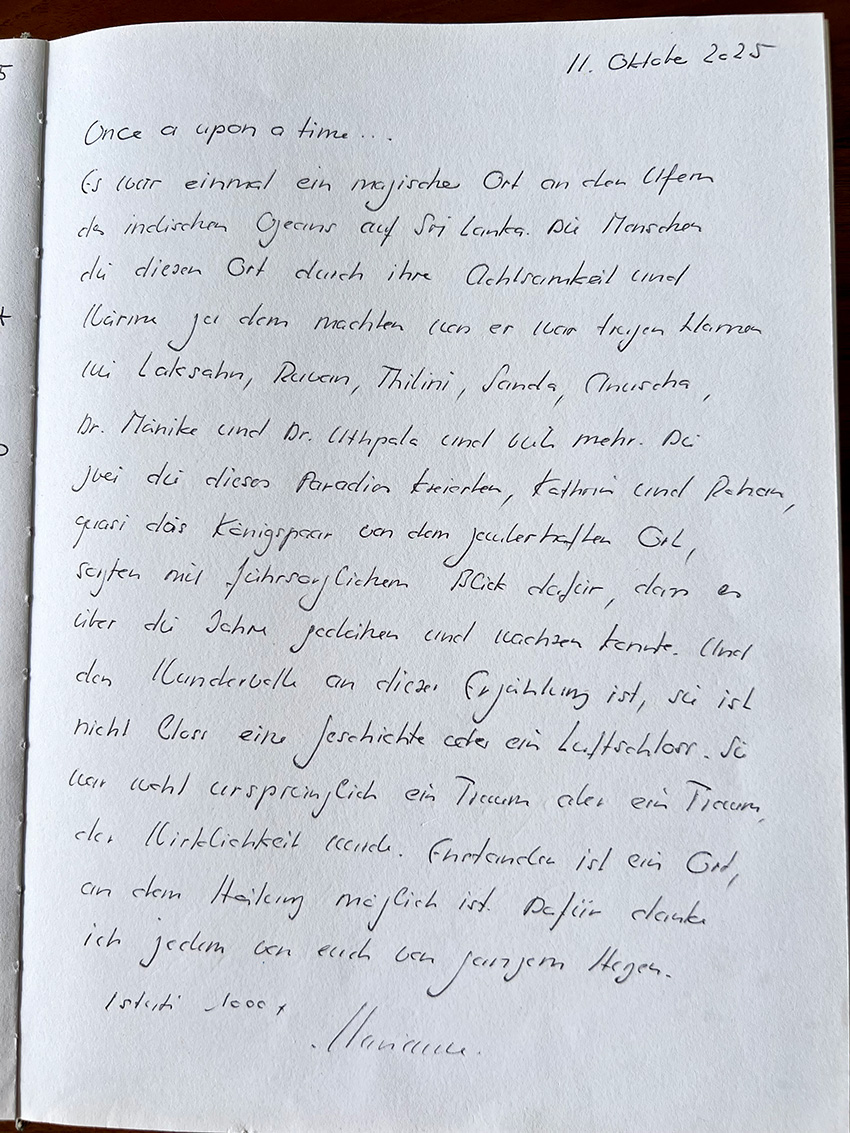 11. Oktober 2025
Once a upon a time...
Es war einmal ein magischer Ort an den Ufern
des indischen Ozeans auf Sri Lanka. Die Menschen
die diesen Ort durch ihre Achtsamkeit und
Wärme zu dem machten was er war tragen Namen
wie Laksahn, Ruwan, Thilini, Sanda, Anuscha,
Dr. Mänike und Dr. Uthpala und viele mehr. Die
zwei die dieses Paradies kreierten, Kathrin und Rohan,
quasi das Königspaar von dem zauberhaften Ort,
sorgten mit führsorglichem Blick dafür, dass es
über die Jahre gedeihen und wachsen konnte. Und
das Wundervolle an dieser Erzählung ist, sie ist
nicht bloss eine Geschichte oder ein Luftschloss. Sie
war wohl ursprünglich ein Traum aber ein Traum,
der Wirklichkeit wurde. Enstanden ist ein Ort,
an dem Heilung möglich ist. Dafür danke
ich jedem von euch von ganzem Herzen.
Istuti 1000 x
Marianne.